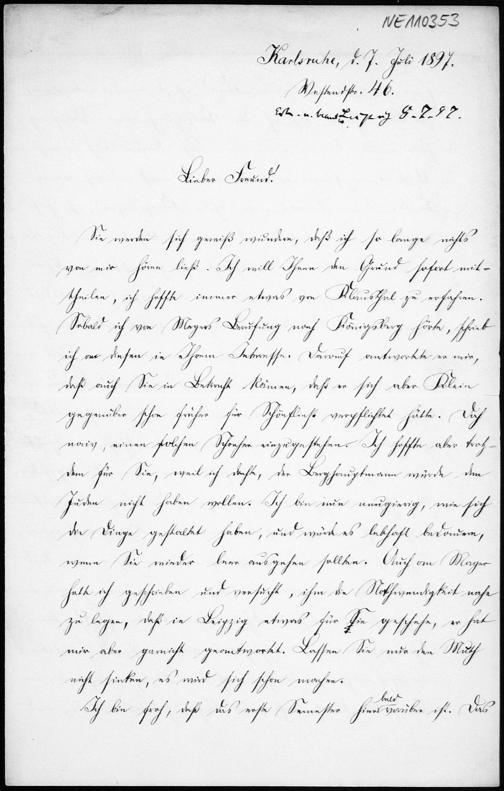 NE110353
Karlsruhe, d. 7. Juli 1897.
Westendstr. 46.
Leipzig 8-7-97.
Lieber Freund!
Sie werden sich gewiß wundern, daß ich so lange nichts
von mir hören ließ. Ich will Ihnen den Grund sofort mit-
theilen, ich hoffte immer etwas von Klausthal zu erfahren.
Sobald ich von Meyers Berufung nach Königsberg hörte, schrieb
ich an diesen in Ihrem Interesse. Darauf antwortete er mir,
daß auch Sie in Betracht kämen, daß er sich aber Klein
gegenüber schon früher für Schönfließ verpflichtet hätte. Doch
naiv, einen solchen Schacher einzugestehen. Ich hoffte aber trotz-
dem für Sie, weil ich dachte, der Berghauptmann würde den
Juden nicht haben wollen. Ich bin nun neugierig, wie sich
die Dinge gestaltet haben, und würde es lebhaft bedauern,
wenn Sie wieder leer ausgehen sollten. Auch an Mayer
hatte ich geschrieben und versucht, ihm die Nothwendigkeit nahe
zu legen, daß in Leipzig etwas für Sie geschehe, er hat
mir aber garnicht geantwortet. Lassen Sie nur den Muth
nicht sinken, es wird sich schon machen.
Ich bin froh, daß das erste Semester hier bald vorüber ist. Das